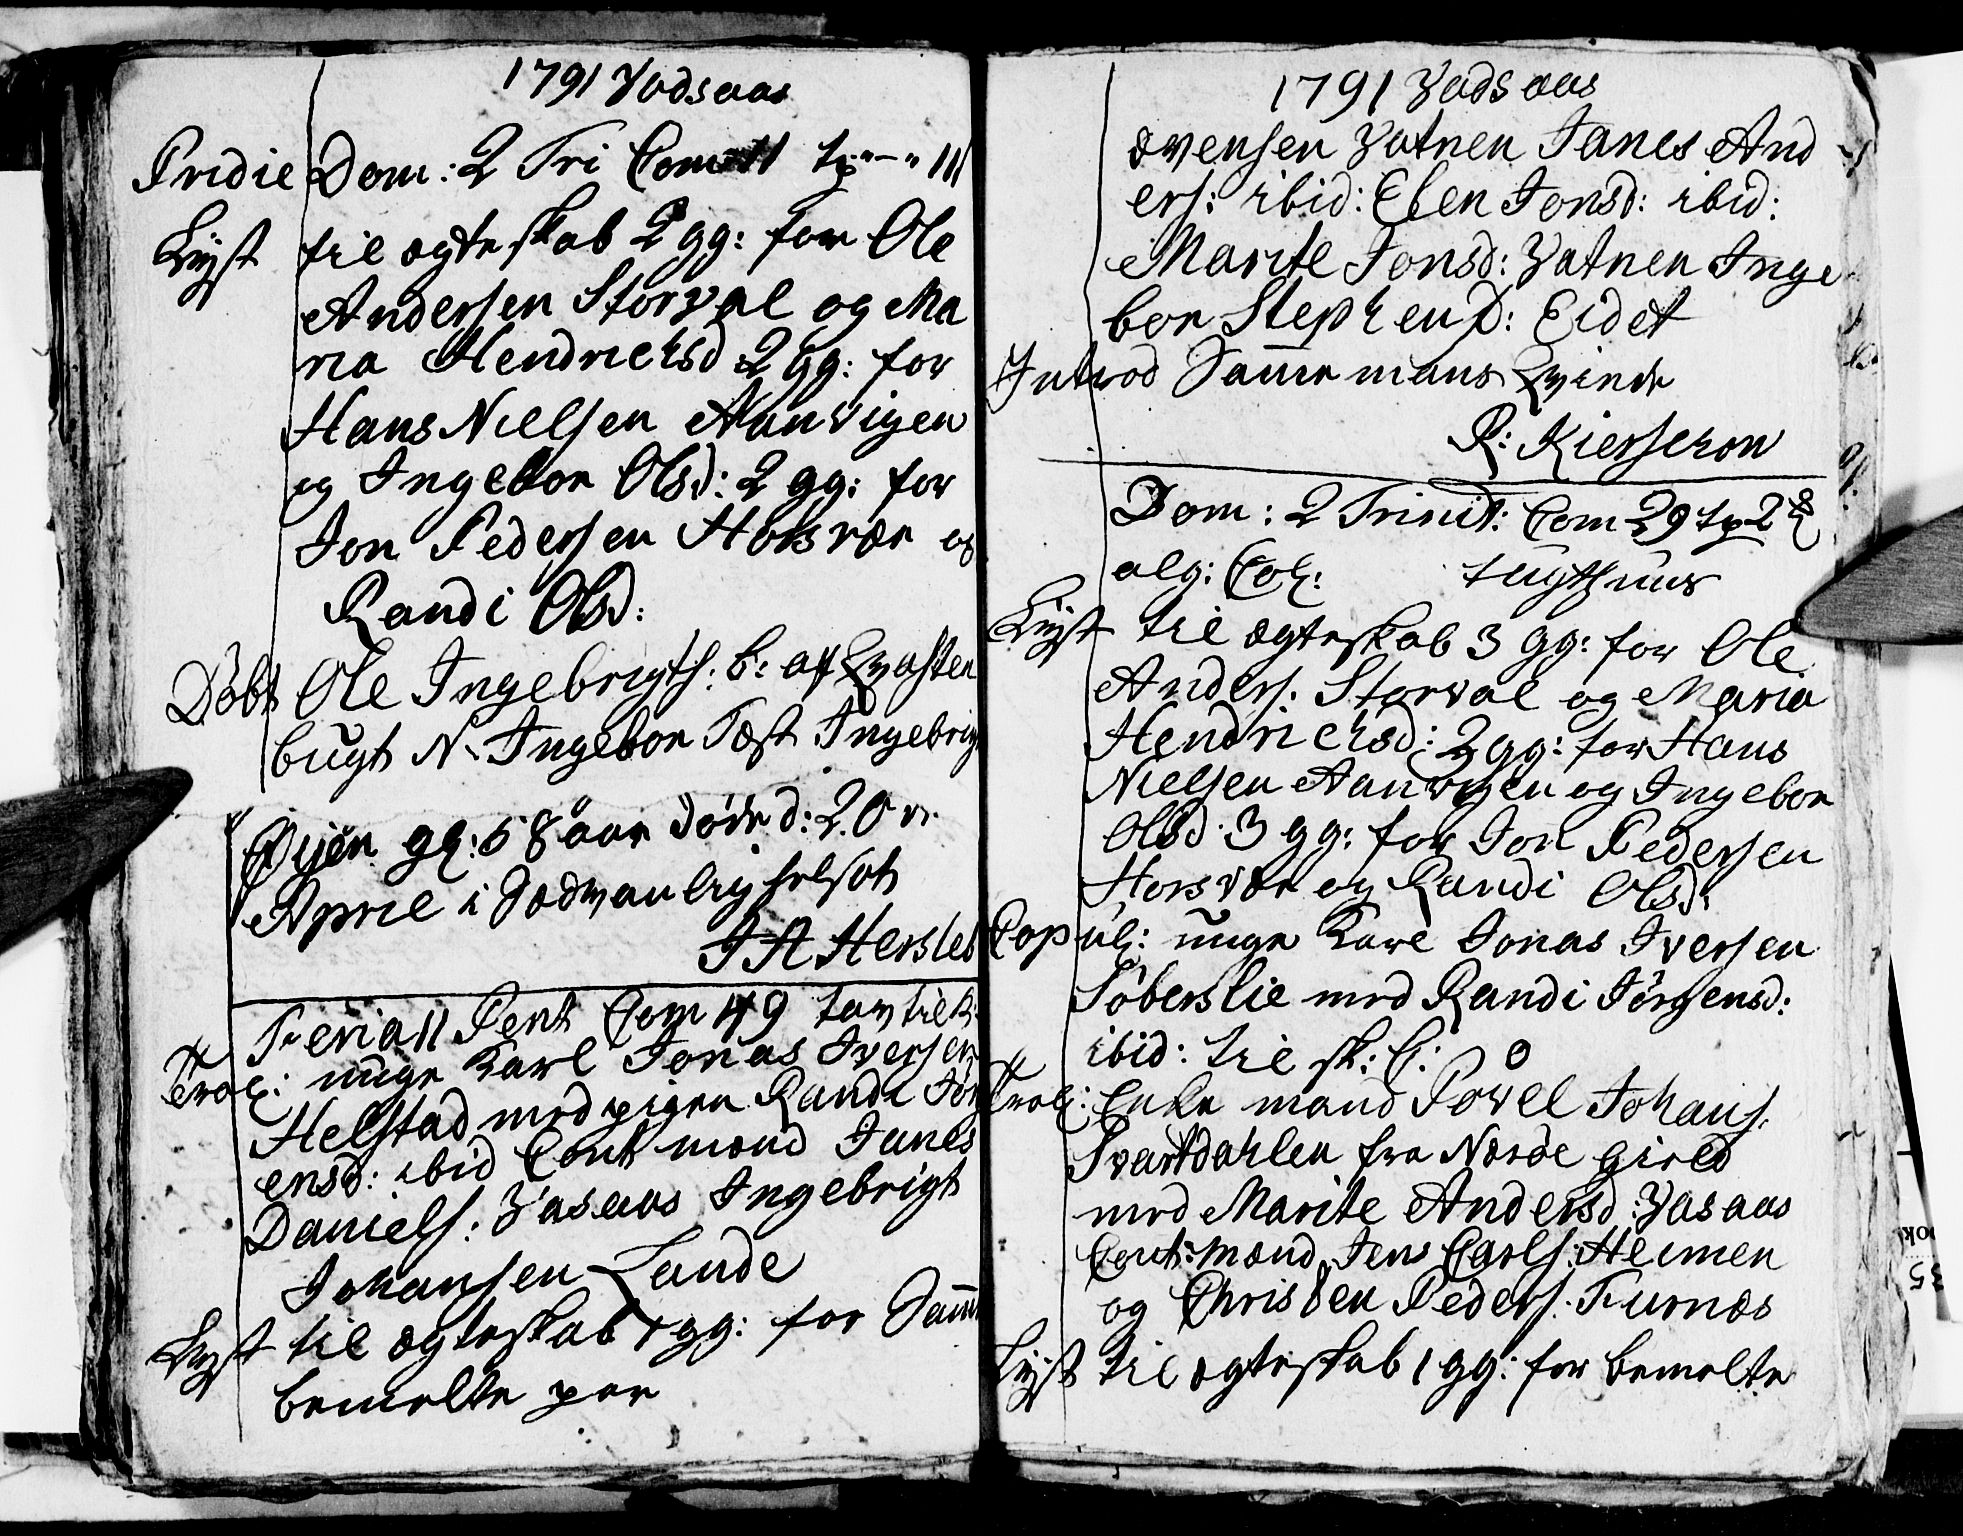 1791 Vadsaas
Pridie Dom: 2 Tri Com 11
Lyst til ægteskab 2 gg: for Ole
Andersen Storval og Ma
ria Hendrichsd 2 gg: for
Hans Nielsen Aunvigen
og Ingebor Olsd: 2 gg: for
Jon Pedersen Horsvær og
Randi Olsd:
Döbt Ole Ingebrigts: b: af Qvasten
bugt N. Ingebor Test Ingebrig
gl: 58 aar döde d: 20
April i Sædvanlig
J A Hersleb
Feria 11 Pent Com 49
Trol: unge Karl Jonas Iversen
Helstad med pigen Randi Jörg
ensd: ibid Caut mænd Janes
Daniels: Vasaas Ingebrigt
Johansen Lande
Lyst til ægteskab 1 gg: for Samme
bemelte par
1791 Vadsaas
Svensen Vatnen Janes And
ers: ibid: Elen Jonsd: ibid:
Marite Jonsd: Vatnen Inge
bor Stephens D: Eidet
Introd Samme mans Qvinde
R: Kierschow
Dom: 2 Trinit: Com 29
alg: Col: tugthuus
Lyst til ægteskab 3 gg: for Ole
Anders. Storval og Maria
Hendrichsd: 2 gg: for Hans
Nielsen Aunvigen og Ingebor
Olsd 3 gg: for Jon Pedersen
Horsvær og Randi Olsd:
Copul: unge Karl Jonas Iversen
Söberslie med Randi Jörgensd:
ibid: til sk: C: 0
Trol: Enke mand Povel Johans.
Svartdahlen fra Norde gield
med Marite Andersd: Vasaas
Caut: mænd Jens Carls: Heimen
og Christen Peders. Furnæs
Lyst til ægteskab 1 gg: for bemelte